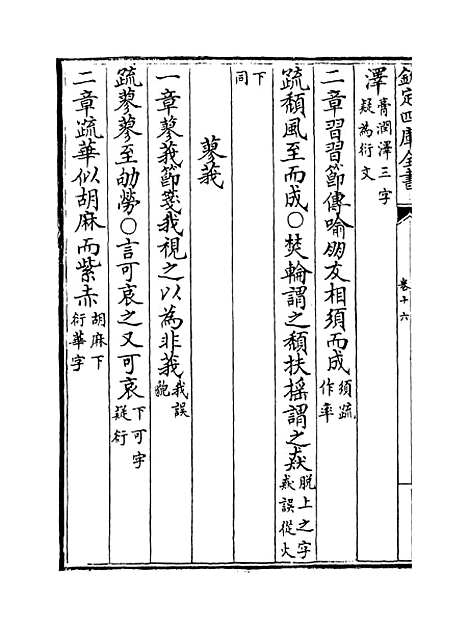 欽定四庫全書
卷十六
澤膏潤澤三字疑為衍文
二章習習節傳喻朋友相須而成須疏作率
疏頽風至而成○焚輪謂之頽扶摇謂之猋脱上之字猋誤從火
下同
蓼莪
一章蓼莪節箋我視之以為非莪我誤貌
疏蓼蓼至劬勞○言可哀之又可哀下可字疑衍
二章疏華似胡麻而紫赤胡麻下衍華字